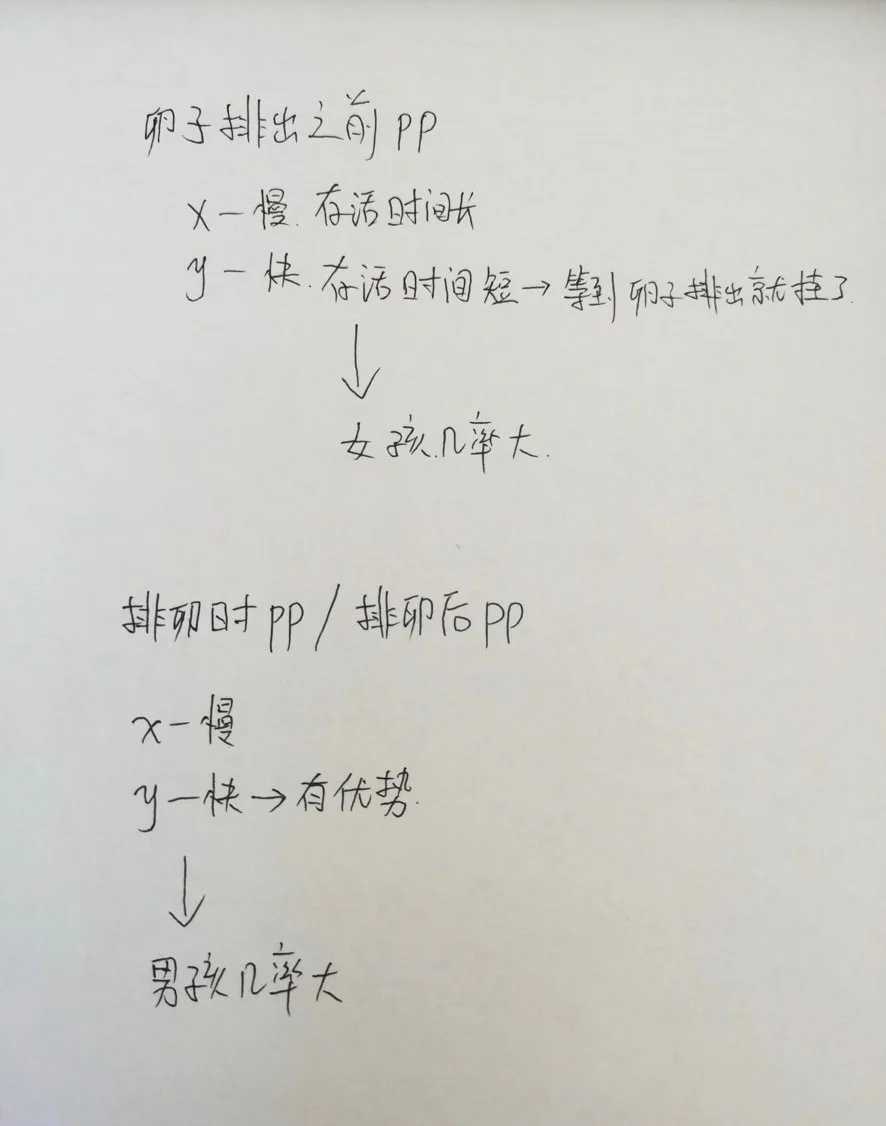 卵子排出之前pp
x-慢.存活时间长
y-快.存活时间短→等到卵子排出就挂了.
↓
女孩几率大.
排卵时pp/排卵后pp
x-慢
y-快→有优势.
↓
男孩几率大